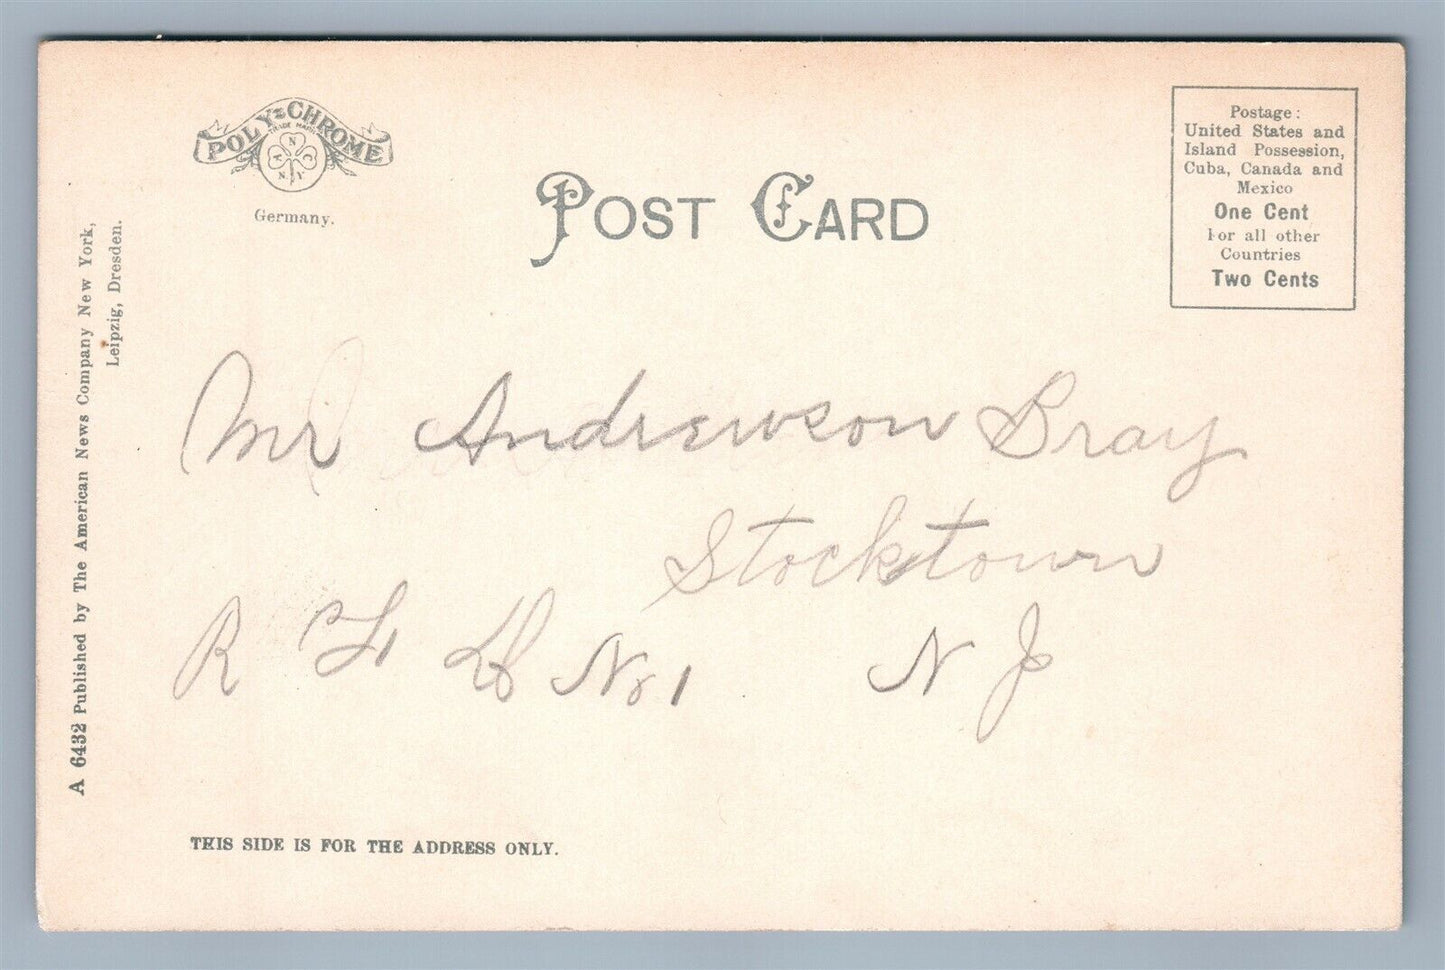 POLY-CHROME
TRADE MARK
A N C
N. Y.
Germany.
POST CARD
Postage:
United States and
Island Possession,
Cuba, Canada and
Mexico
One Cent
For all other
Countries
Two Cents
A 6432 Published by The American News Company New York,
Leipzig, Dresden.
Mr Andrewson Bray
Stocktown
R F D No 1 N J
THIS SIDE IS FOR THE ADDRESS ONLY.